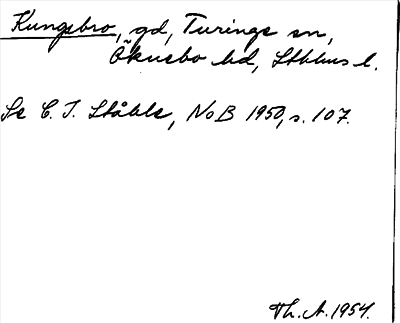 Kungsbro, gd, Turinge sn,
Öknebo hd, Sthlms l.
Se C. I. Ståhle, NoB 1950, s. 107.
Th. A. 1954.